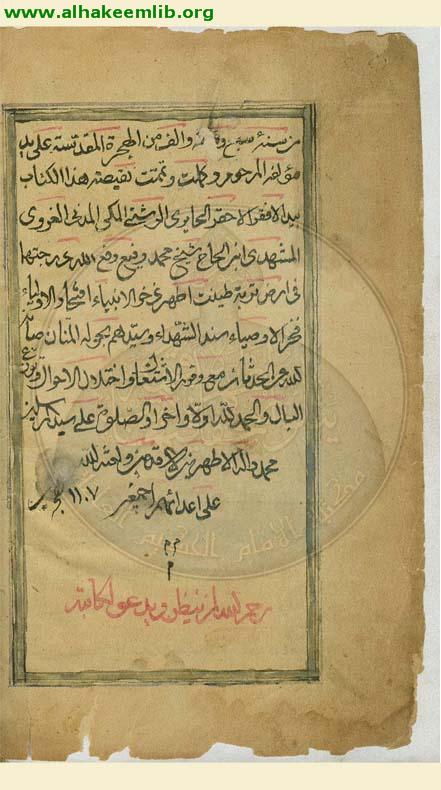 www.alhakeemlib.org
من سنة سبع و والف من الهجرة المقدسة على يد
مؤلفه المرحوم وكملت وتمت نقيصته هذا الكتاب
بيد الافقر الاحقر الحايرى المكى المدنى الغروى
المشهدى ابن الحاج شيخ محمد رفيع رفع الله درجتهما
فى ارض تربة طينت اطهرى خو الانبياء افتخار الاولياء
فخر الاوصياء سند الشهداء وسيدهم بحوله المنان صانه
الله عن الحدثان مع وفور الاشتغال واختلال الاحوال
البال والحمد لله اولا واخرا والصلوة على سيد المرسلين
محمد واله الاطهرين الاقدمين ولعنة الله
على اعدائهم اجمعين ١١٠٧
م م
م
رحم الله من نظر ويدعو لكاتبه